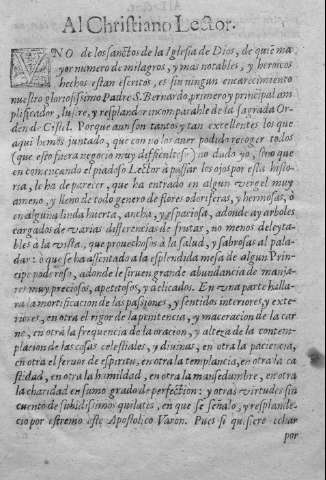 Al Christiano Lector.
VNO de los sanctos de la Iglesia de Dios, de quiẽ ma
yor numero de milagros, y mas notables, y heroycos
hechos estan escritos, es sin ningun encarecimiento
nuestro gloriosissimo Padre S. Bernardo, primero y principal am
plificador, lustre, y resplandor incomparable de la sagrada Or-
den de Cistel. Porque aun son tantos y tan excellentes los que
aqui hemos juntado, que con no los auer podido recoger todos
(que esto fuera negocio muy difficultoso) no dudo yo, sino que
en començando el piadoso Lector à passar los ojos por esta histo
ria, le ha de parecer, que ha entrado en algun vergel muy
ameno, y lleno de todo genero de flores odoriferas, y hermosas, ò
en alguna linda huerta, ancha, y espaciosa, adonde ay arboles
cargados de varias differencias de frutas, no menos deleyta-
bles a la vista, que prouechosas à la salud, y sabrosas al pala-
dar: ò que se ha assentado a la esplendida mesa de algun Prin-
cipe poderoso, adonde le siruen grande abundancia de manja-
res muy preciosos, apetitosos, y delicados. En vna parte halla-
ra la mortificacion de las passiones, y sentidos interiores, y exte-
riores, en otra el rigor de la penitencia, y maceracion de la car
ne, en otra la frequencia de la oracion, y alteza de la contem-
placion de las cosas celestiales, y diuinas, en otra la paciencia,
en otra el feruor de espiritu, en otra la templancia, en otra la ca
stidad, en otra la humildad, en otra la mansedumbre, en otra
la charidad en sumo grado de perfection: y otras virtudes sin
cuento de subidissimos quilates, en que se señalo, y resplande-
cio por estremo este Apostolico Varon. Pues si quisiere echar
por